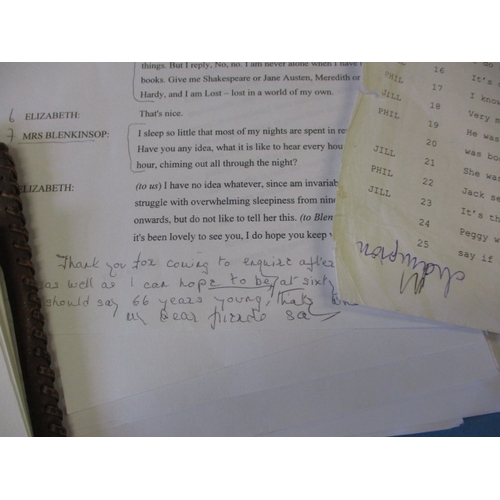 things. But I reply, No, no. I am never alone when I have
books. Give me Shakespeare or Jane Austen, Meredith or
Hardy, and I am Lost – lost in a world of my own.
6 ELIZABETH: That's nice.
7 MRS BLENKINSOP: I sleep so little that most of my nights are spent in
Have you any idea, what it is like to hear every
hour, chiming out all through the night?
LIZABETH: (to us) I have no idea whatever, since am
struggle with overwhelming sleepiness from
onwards, but do not like to tell her this. (to
it's been lovely to see you, I do hope you keep
Thank you for coming to enquire after
as well as I can hope to be, at sixty
should say 66 years young,
dear friends
16 It's
PHIL 17 I
JILL 18 Very
PHIL 19 He was
20 was
JILL 21 She was
PHIL 22 Jack
JILL 23 It's
24 Peggy
25 say if